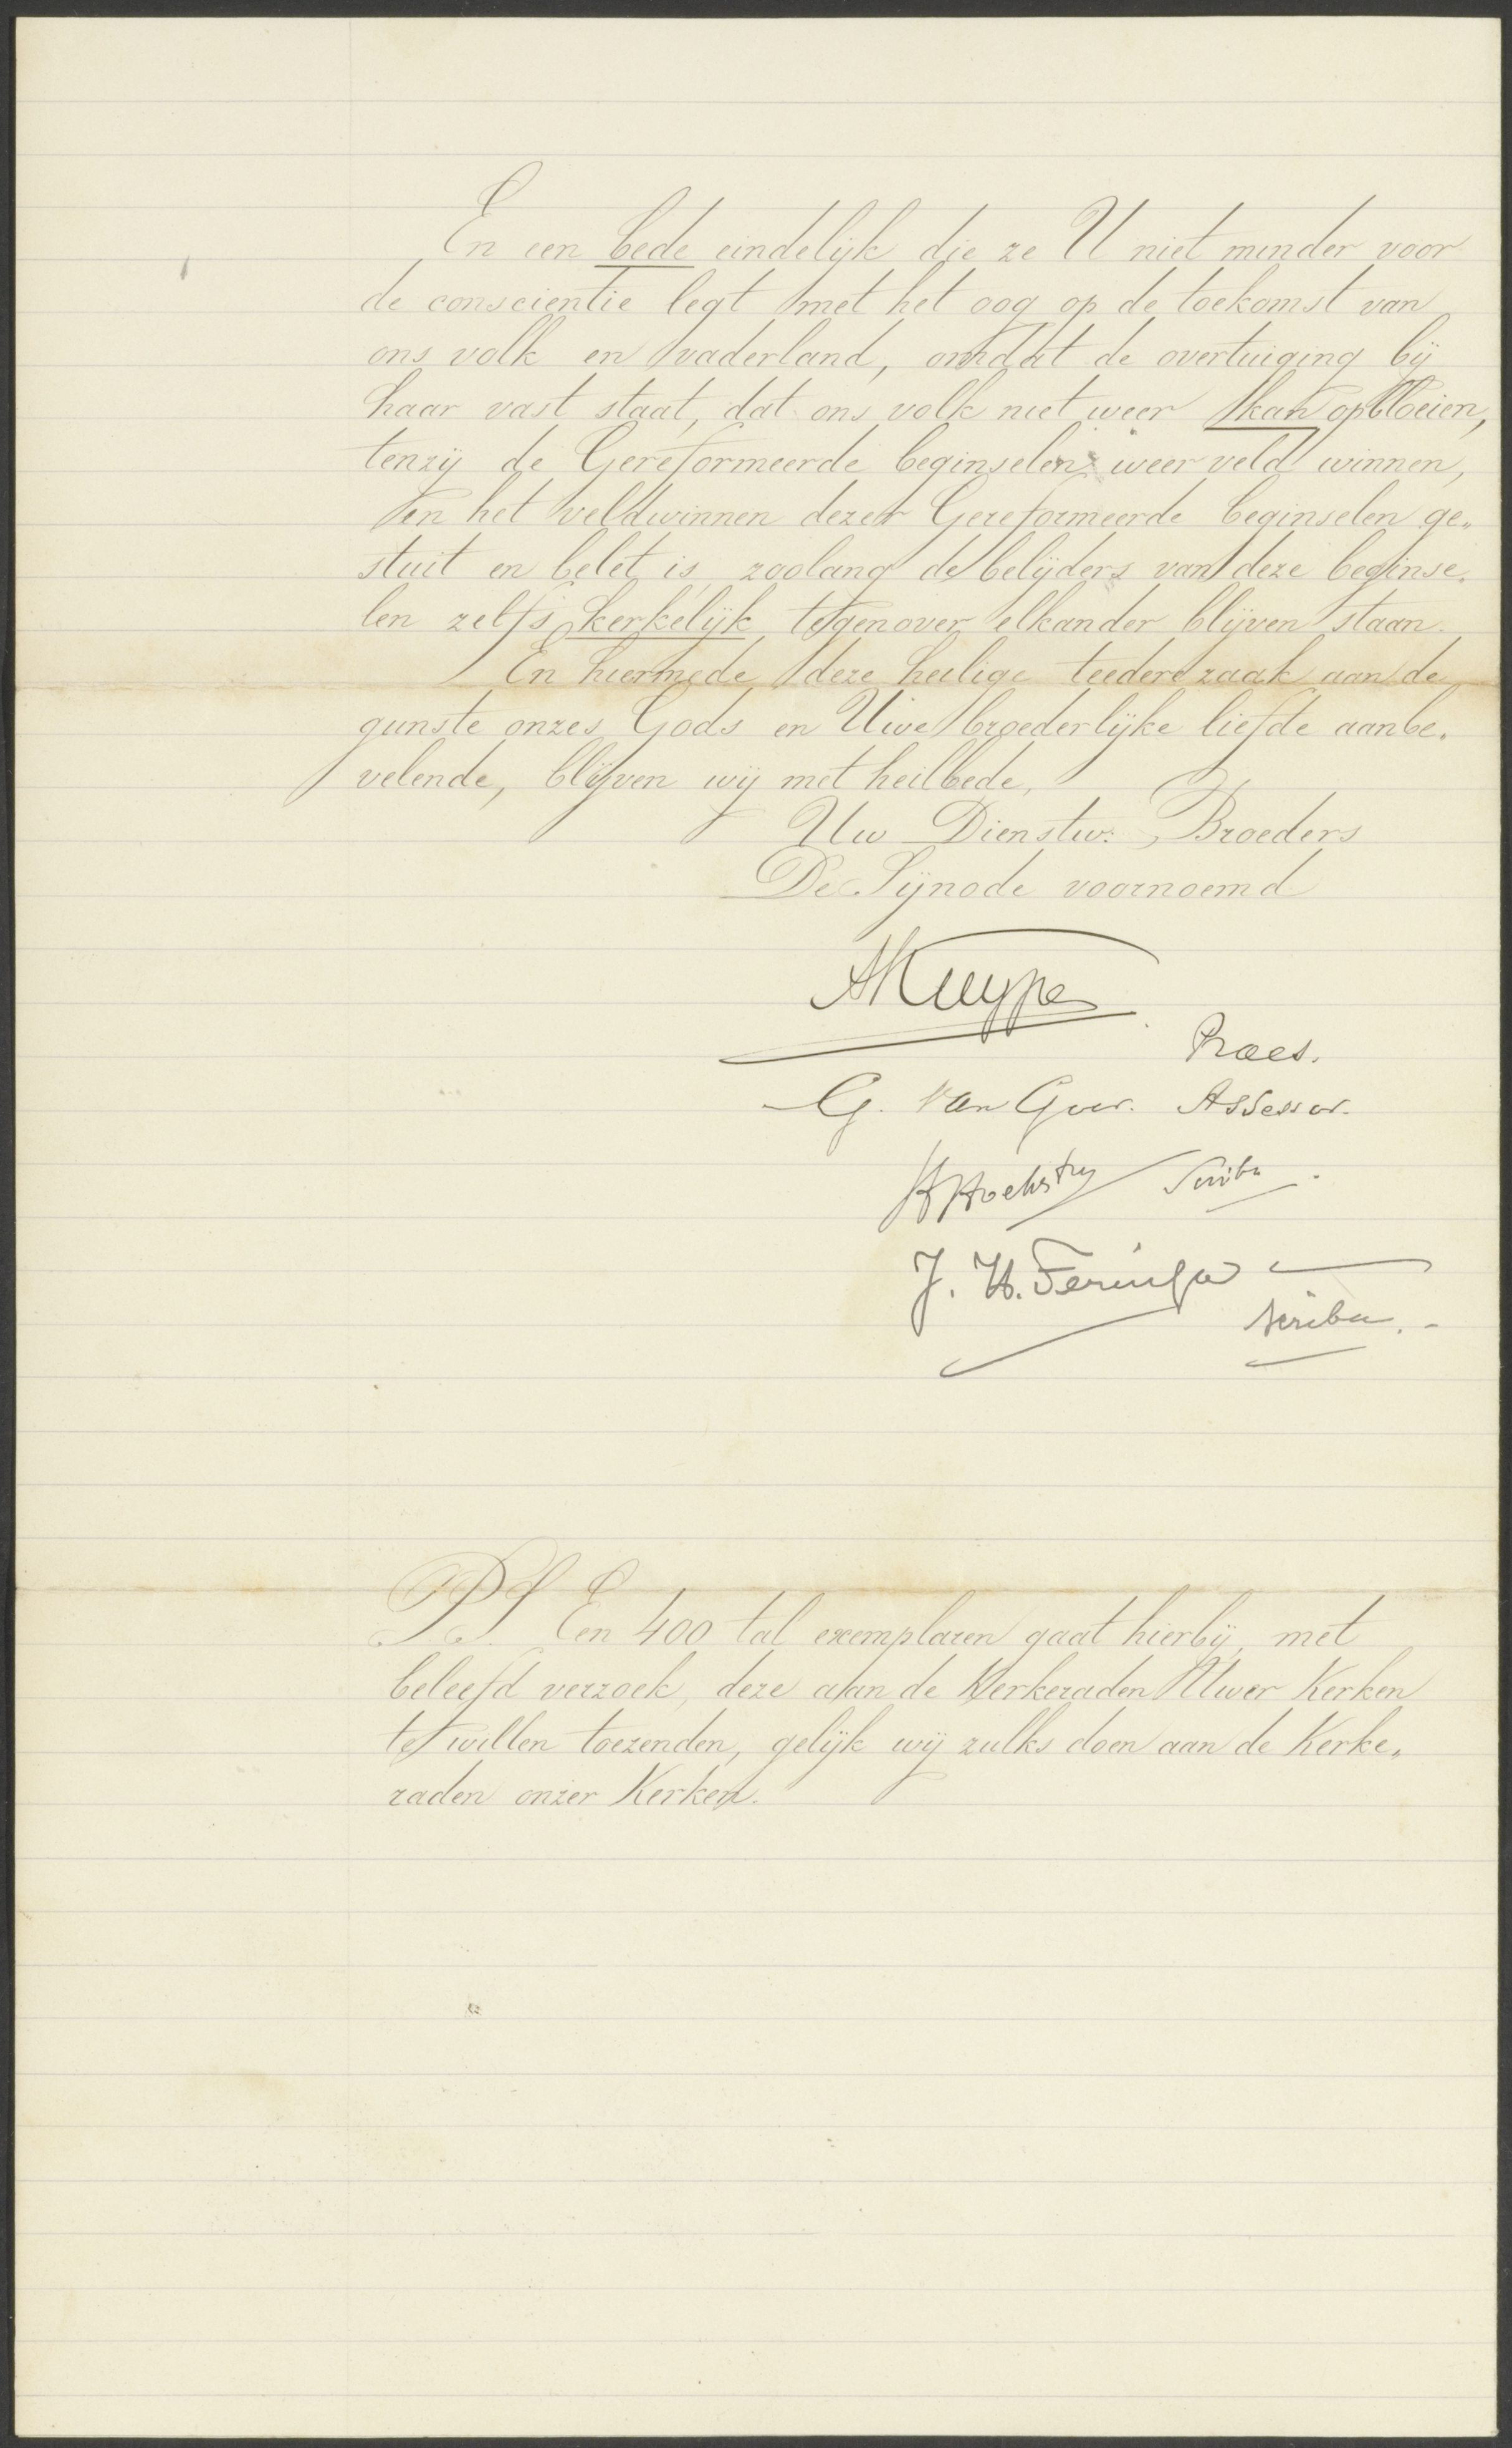 En een bede eindelijk die ze U niet minder voor
de conscientie legt met het oog op de toekomst van
ons volk en vaderland, omdat de overtuiging bij
haar vast staat, dat ons volk niet weer kan opbloeien,
tenzij de Gereformeerde beginselen weer veld winnen,
en het veldwinnen dezer Gereformeerde beginselen ge„
stuit en belet is zoolang de belijders van deze beginse„
len zelfs kerkelijk tegenover elkander blijven staan.
En hiermede deze heilige teedere zaak aan de
gunste onzes Gods en Uwe broederlijke liefde aanbe„
velende, blijven wij met heilbede,
Uw Dienstw: Broeders
De Sijnode voornoemd
AKuyper
Praes.
G. van Goor. Assessor.
H Hoekstra Scriba.
J. H. Feringa
scriba.-
P.S. Een 400 tal exemplaren gaat hierbij, met
beleefd verzoek, deze aan de Kerkeraden Uwer Kerken
te willen toezenden, gelijk wij zulks doen aan de Kerke„
raden onzer Kerken.